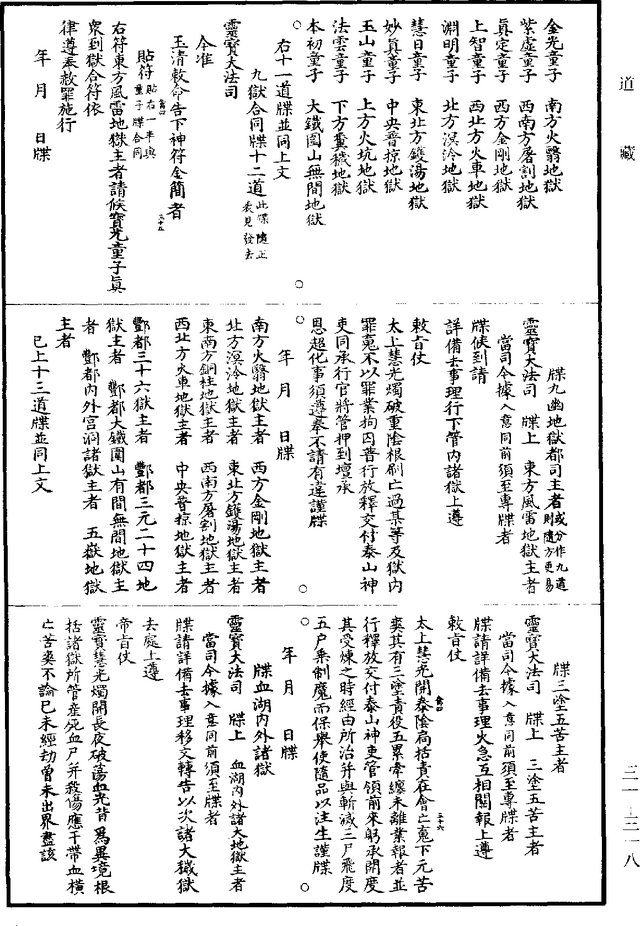 道藏
金光童子　南方火翳地獄
紫虛童子　西南方屠割地獄
真定童子　西方金剛地獄
上智童子　西北方火車地獄
淵明童子　北方溟泠地獄
慧日童子　東北方鑊湯地獄
妙真童子　中央普掠地獄
玉山童子　上方火坑地獄
法雲童子　下方糞穢地獄
本初童子　大鐵圍山無間地獄
右十一道牒並同上文
九獄合同牒十二道此牒隨正表見發去
靈寶大法司
今准
玉清敕命告下神符金簡者
三十五
貼符貼右一半與童子牒合同
右符東方風雷地獄主者請候寶光童子真
眾到獄合符依
律遵奉赦罪施行
年　月　日牒
牒九幽地獄都司主者或分作九道則隨方更易
靈寶大法司　牒上　東方風雷地獄主者
當司今據入意同前須至專牒者
牒候到請
詳備去事理行下管內諸獄上遵
敕旨仗
太上慧光燭破重陰根刷亡過某等及獄內
罪魂不以罪業拘囚普行放釋交付泰山神
吏同承行官將管押到壇承
恩超化事須遵奉不請有違謹牒
年　月　日牒
南方火翳地獄主者　西方金剛地獄主者
北方溟泠地獄主者　東北方鑊湯地獄主者
東南方銅柱地獄主者　西南方屠割地獄主者
西北方火車地獄主者　中央普掠地獄主者
酆都三十六獄主者　酆都三元二十四地
獄主者　酆都大鐵圍山有間無間地獄主
者　酆都內外宮洞諸獄主者　五嶽地獄
主者
已上十三道牒並同上文
牒三塗五苦主者
靈寶大法司　牒上　三塗五苦主者
當司今據入意同前須至專牒者
牒請詳備去事理火急互相關報上遵
敕旨仗
三十六
太上慧光開泰陰扃括責在會亡魂下元苦
爽其有三塗責役五累牽纏未離業報者並
行釋放交付泰山神吏管領前來躬承開度
其受煉之時經由所治并與斬滅三尸飛度
五戶乘制魔而保舉使隨品以注生謹牒
年　月　日牒
牒血湖內外諸獄
靈寶大法司　牒上　血湖內外諸大地獄主者
當司今據入意同前須至牒者
牒請詳備去事理移文轉告以次諸大鐵獄
去處上遵
帝旨仗
靈寶慧光燭開長夜破蕩血光普為異境根
括諸獄所管產死血尸并殺傷應于帶血橫
亡苦爽不論已未經劫曾未出界盡該
三一—三一八